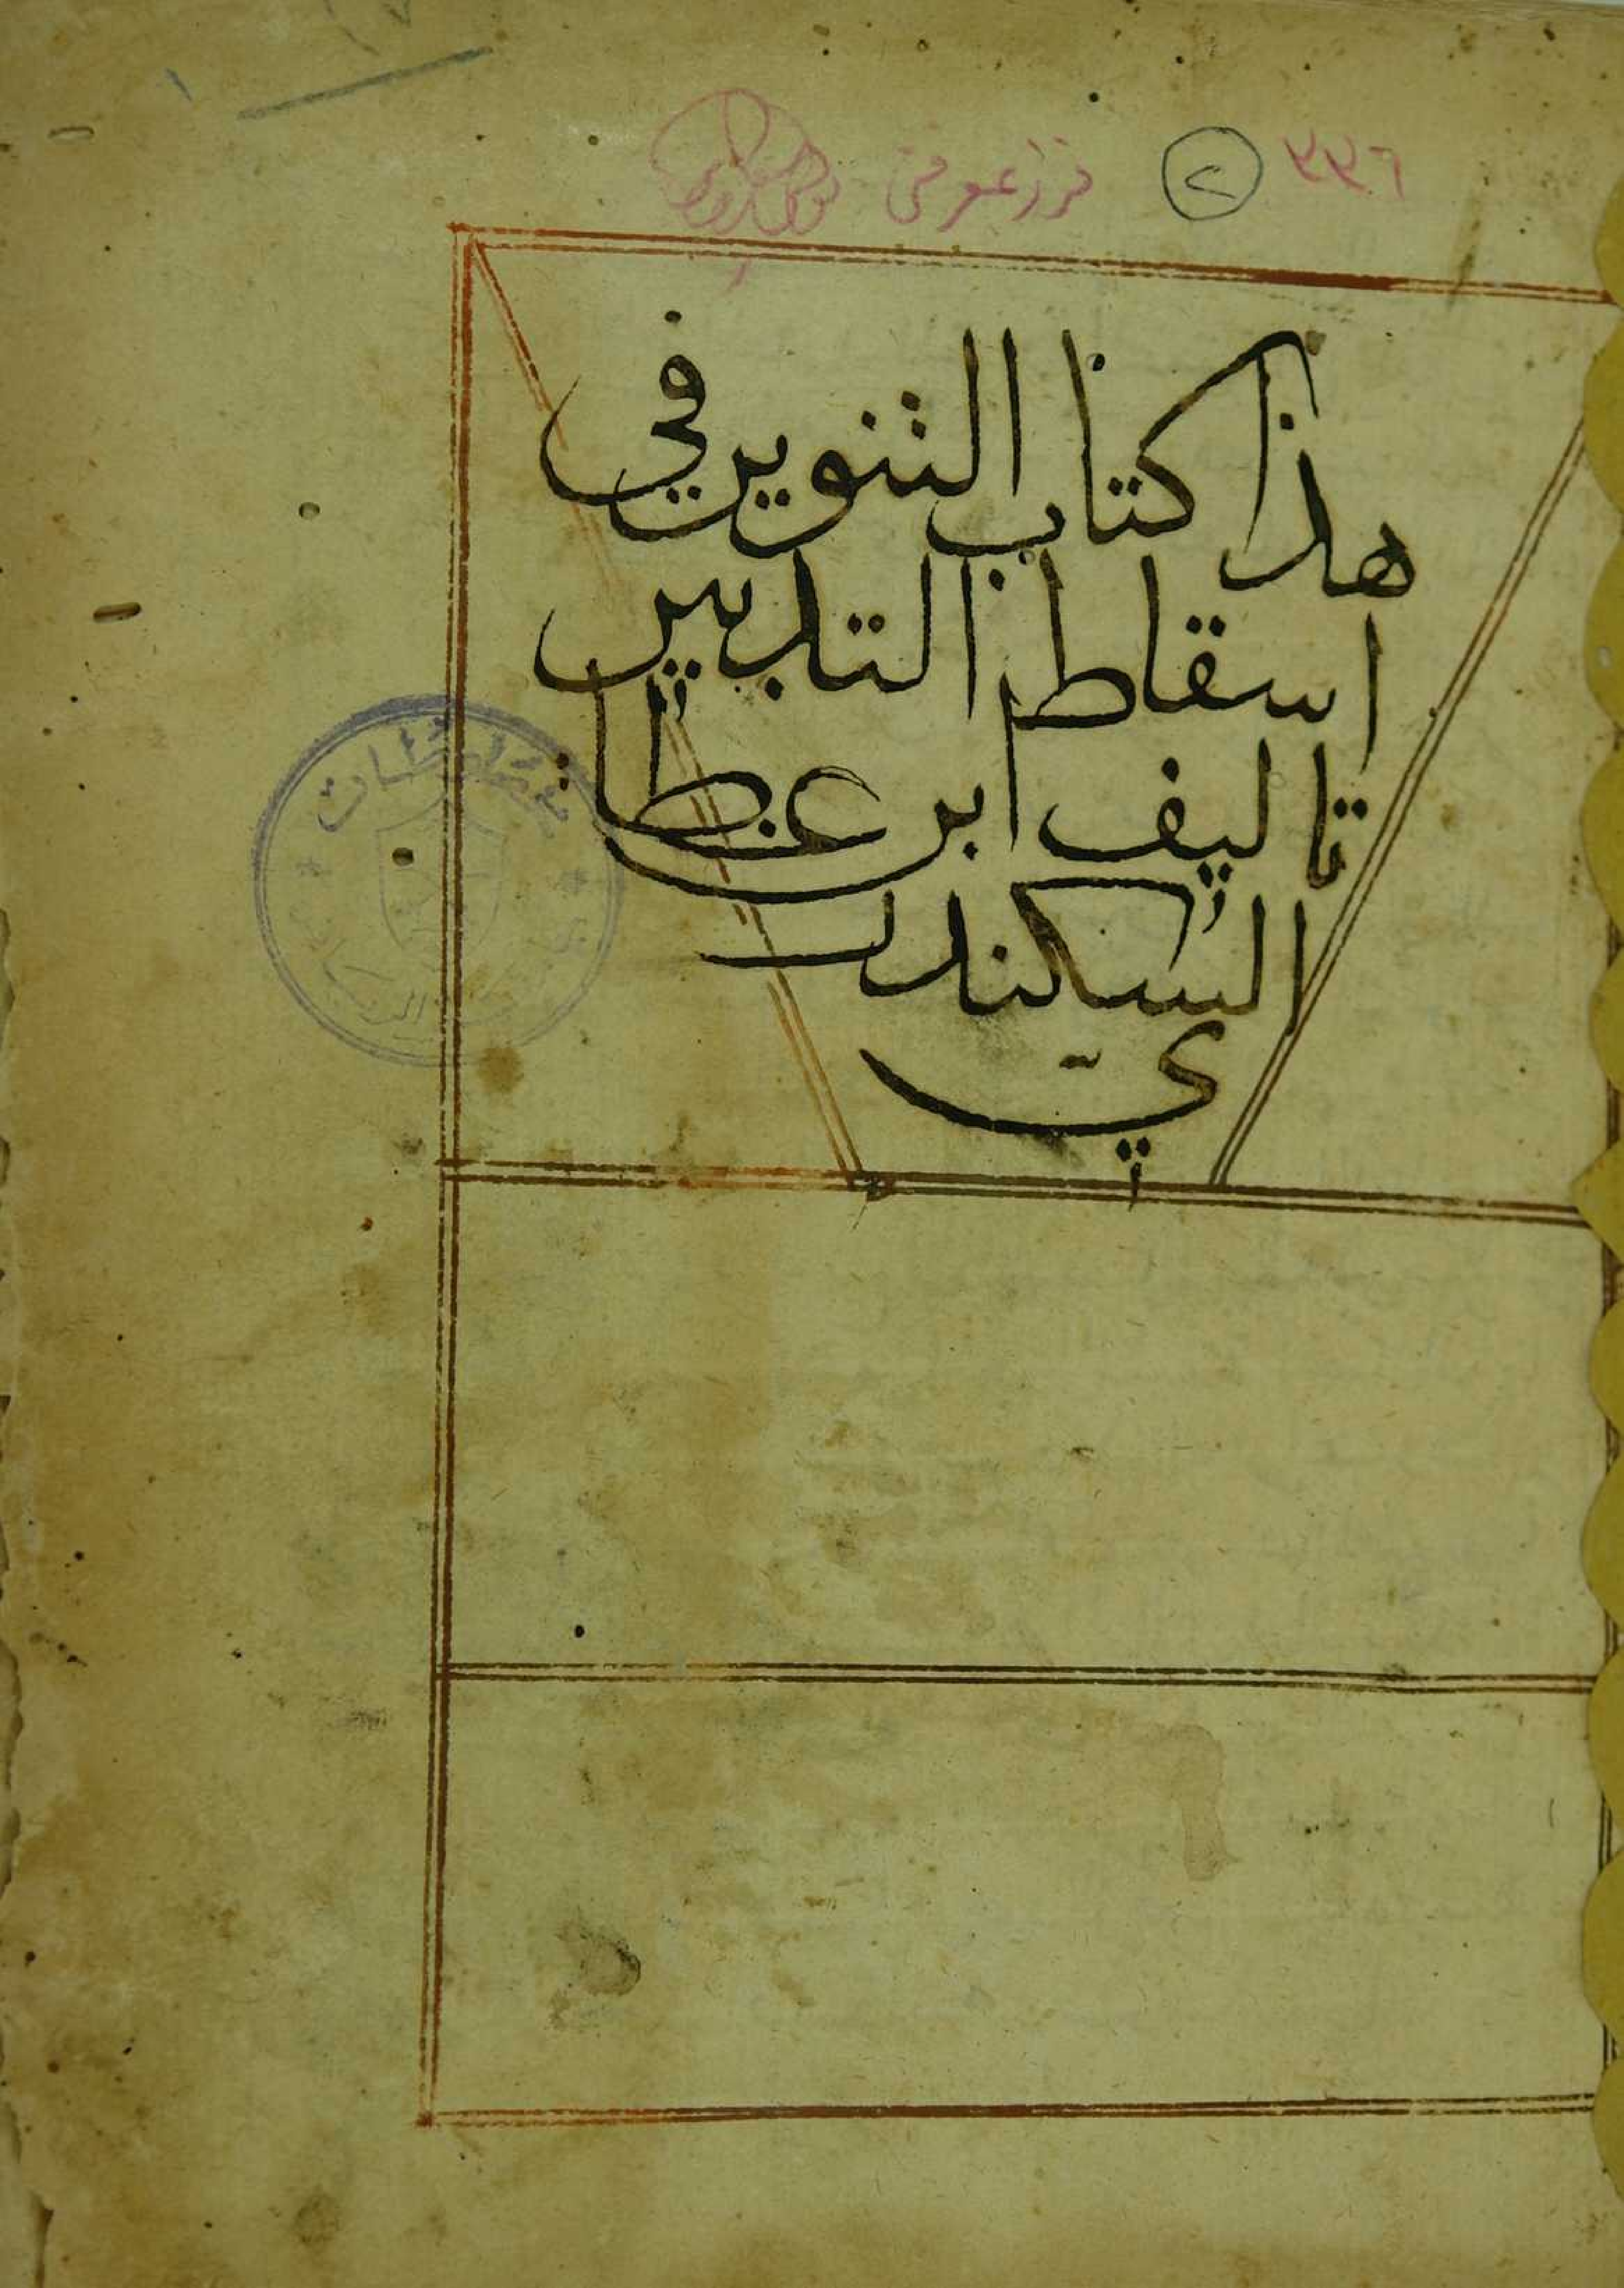 ٣٣٦ ٢
هذا كتاب التنوير في
اسقاط التدبير
تاليف ابن عطا
السكندر
يّ